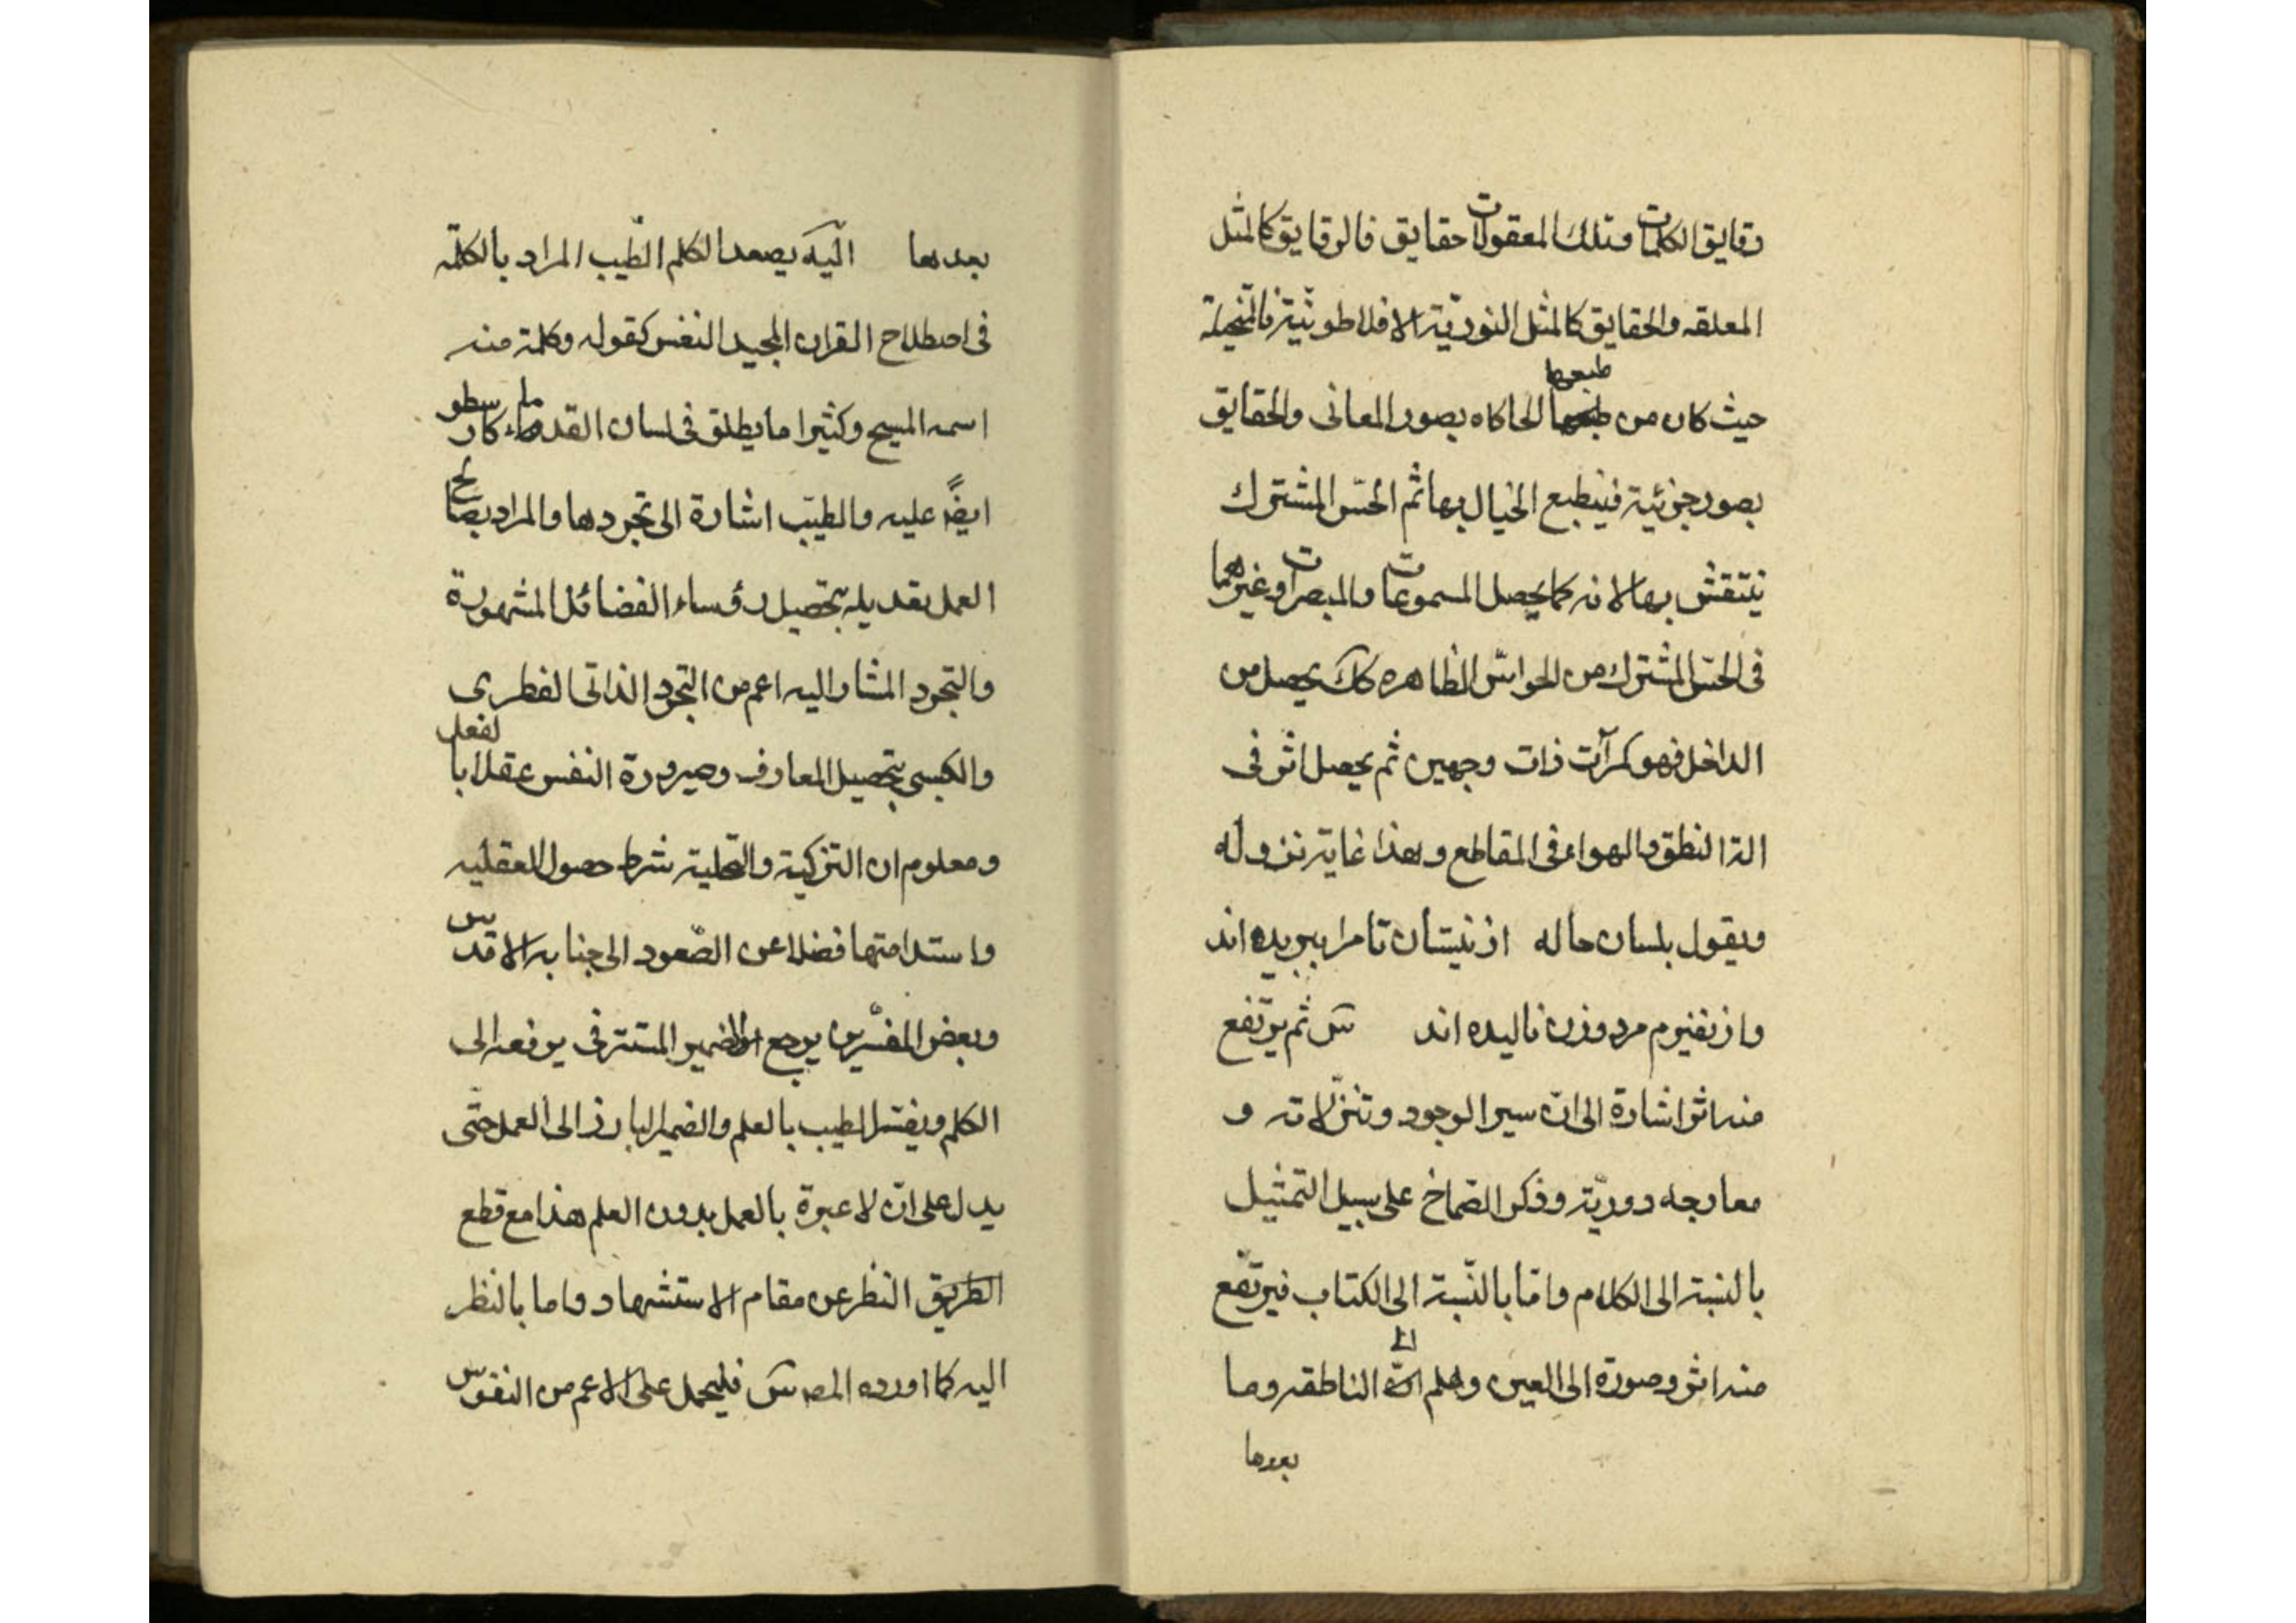 رقایق الکلمات وتلك المعقولات حقایق فالرقایق کالمثل
المعلقه والحقایق کالمثل النوریّة الافلاطونیّة فالمتخیلة
طبعها
حیث کان من الحاکاه بصور المعانی والحقایق
بصور جزئیة فینطبع الخیال بها ثم الحسّ المشترك
ینتقش بها لانه کما یحصل المسموعات والمبصرات وغیرهما
فی الحسّ المشترك من الحواسّ الظاهره کک یحصل من
الداخل فهو کمرآت ذات وجهین ثم یحصل اثر فی
الة النطق والهواء فی المقاطع وهذا غایة نزوله
ویقول بلسان حاله از نیستان تا مرا ببریده اند
واز نفیرم مرد وزن نالیده اند س ثم یرتفع
منه اثر اشارة الی ان سیر الوجود وتنزلاته و
معارجه دوریّة وذکر الصّماخ علی سبیل التمثیل
بالنسبة الی الکلام وامّا بالنّسبة الی الکتاب فیرتفع
منه اثر وصورة الی العین وهلم الی الناطقه وما
بعدها
بعدها الیه یصعد الکلم الطّیب المراد بالکلمة
فی اصطلاح القران المجید النفس کقوله وکلمة منه
اسمه المسیح وکثیرا ما یطلق فی لسان القدماء کارسطو
ایضًا علیه والطیّب اشارة الی تجردها والمراد بصالح
العمل تعدیله بتحصیل رؤساء الفضائل المشهورة
والتجرد المشار الیه اعم من التجرد الذاتی الفطری
والکسبی بتحصیل المعارف وصیرورة النفس عقلا بالفعل
ومعلوم ان التزکیة والتحلیة شرط حصول العقلیه
واستدامتها فضلا عن الصّعود الی جنابه الاقدس
وبعض المفسّرین یرجع الضمیر المستتر فی یرفعه الی
الکلم ویفسّر الطیب بالعلم والضمیر البارز الی العمل حتّی
یدل علی انّ لا عبرة بالعمل بدون العلم هذا مع قطع
الطریق النظر عن مقام الاستشهاد واما بالنظر
الیه کما اورده المص س فلیحمل علی الاعم من النفوس